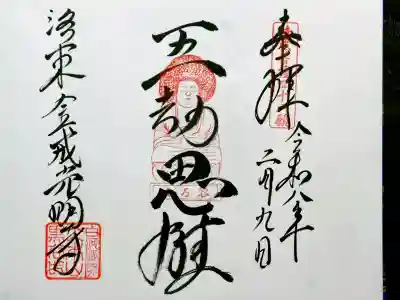 奉拝
令和八年
二月九日
五劫思惟
洛東 金戒光明寺